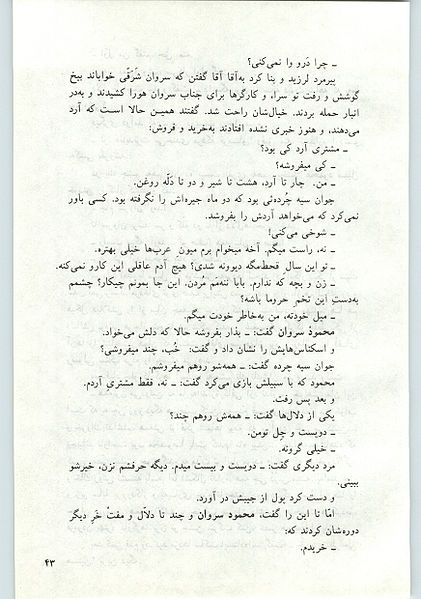 ـ چرا دَرو وا نمی‌کنی؟
پیرمرد لرزید و بنا کرد به‌آقا آقا گفتن که سروان شَرَقّی خواباند بیخ
گوشش و رفت تو سراء و کارگرها برای جناب سروان هورا کشیدند و به‌در
انبار حمله بردند. خیال‌شان راحت شد. گفتند همیـن حالا اسـت که آرد
می‌دهند، و هنوز خبری نشده افتادند به‌خرید و فروش:
ـ مشتری آرد کی بود؟
ـ کی میفروشه؟
ـ من. چار تا آرد، هشت تا شیر و دو تا دَلّه روغن.
جوان سیه چُرده‌ئی بود که دو ماه جیره‌اش را نگرفته بود. کسی باور
نمی‌کرد که می‌خواهد آردش را بفروشد.
ـ شوخی می‌کنی!
ـ نه، راست میگم. آخه میخوام برم میون عرب‌ها خیلی بهتره.
ـ تو این سال قحط‌مگه دیوونه شدی؟ هیچ آدم عاقلی این کارو نمی‌کنه.
ـ زن و بچه که ندارم. بابا ننه‌مَم مُردن. این جا بمونم چیکار؟ چشمم
به‌دستِ این تخمِ حروما باشه؟
ـ میل خودته، من به‌خاطر خودت میگم.
محمود سروان گفت: ـ بذار بفروشه حالا که دلش می‌خواد.
و اسکناس‌هایش را نشان داد و گفت: خُب، چند میفروشی؟
جوان سیه چرده گفت: ـ همه‌شو روهم میفروشم.
محمود که با سبیلش بازی می‌کرد گفت: ـ نه، فقط مشتریِ آردم.
و بعد پس رفت.
یکی از دلال‌ها گفت: ـ همه‌ش روهم چند؟
ـ دویست و چل تومن.
ـ خیلی گرونه.
مرد دیگری گفت: ـ دویست و بیست میدم. دیگه حرفشم نزن، خیرشو
ببینی.
و دست کرد پول از جیبش در آورد.
امّا تا این را گفت، محمود سروان و چند تا دلاّل و مفت خَرِ دیگر
دوره‌شان کردند که:
ـ خریدم.
۴۳